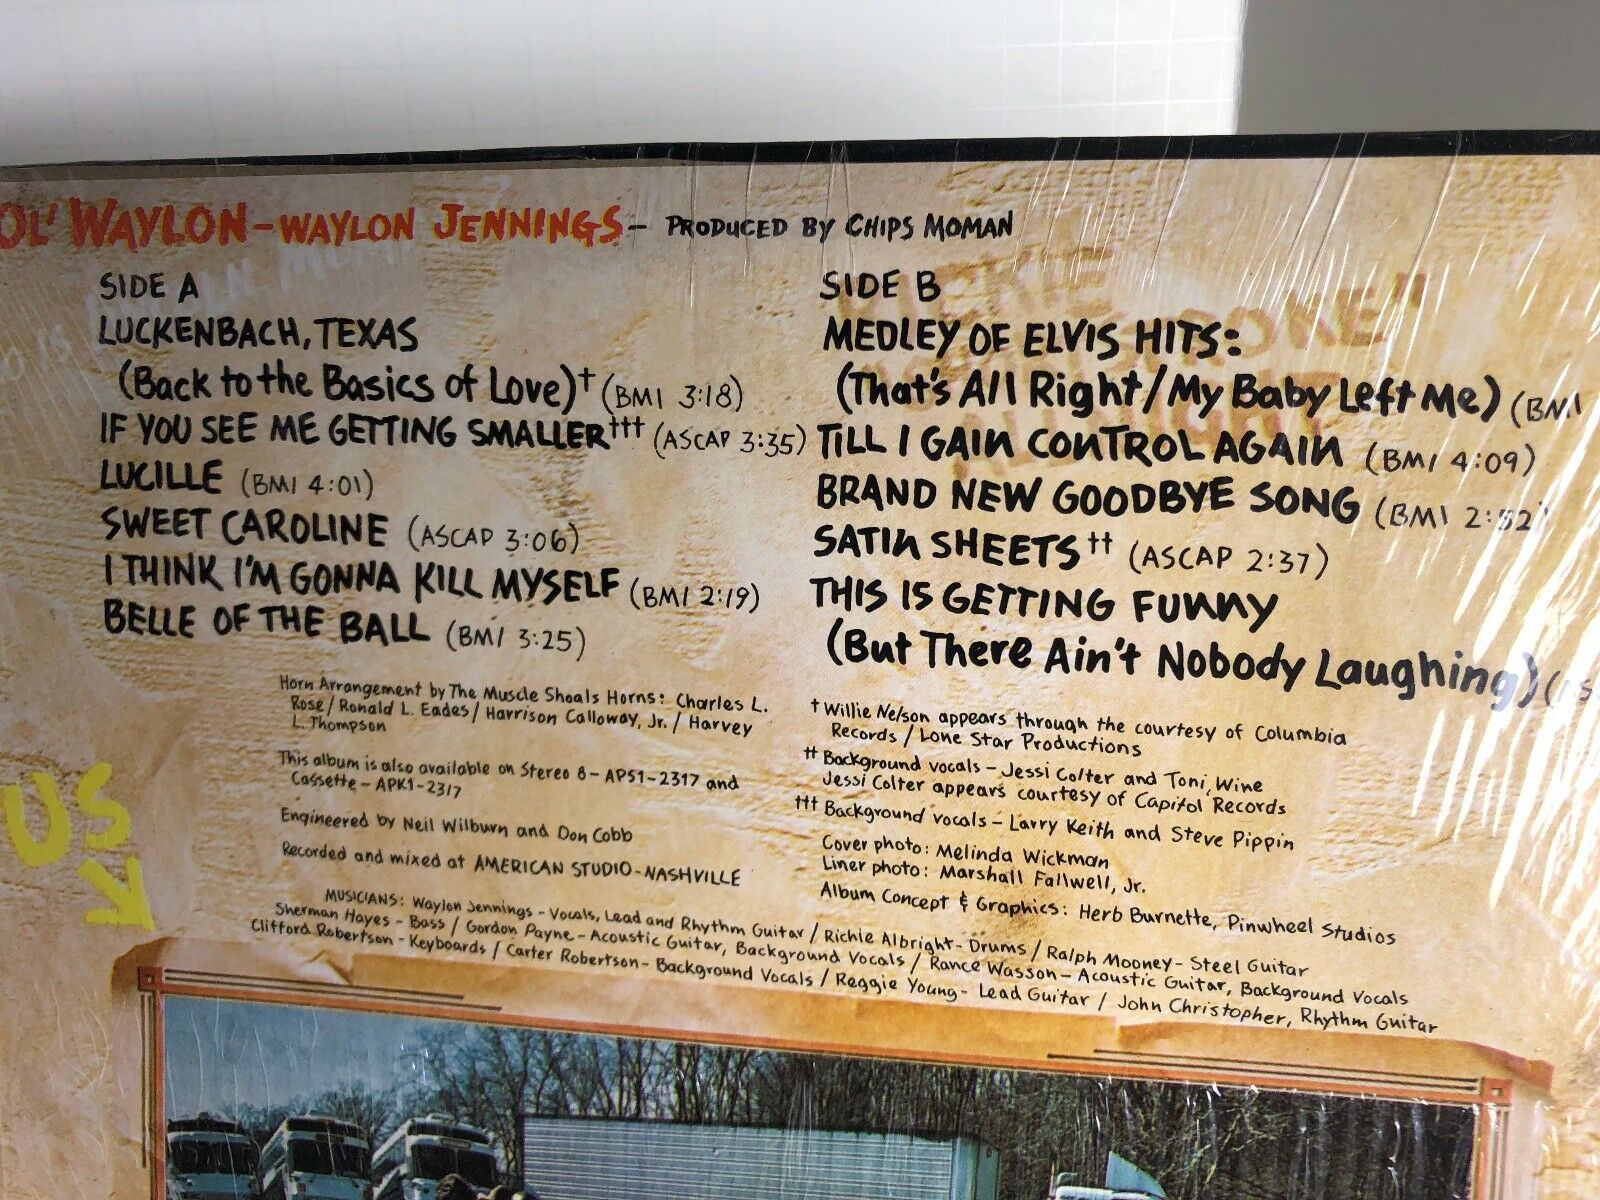 OL' WAYLON - WAYLON JENNINGS - PRODUCED BY CHIPS MOMAN
SIDE A
LUCKENBACH, TEXAS
(Back to the Basics of Love)† (BMI 3:18)
IF YOU SEE ME GETTING SMALLER††† (ASCAP 3:35)
LUCILLE (BMI 4:01)
SWEET CAROLINE (ASCAP 3:06)
I THINK I'M GONNA KILL MYSELF (BMI 2:19)
BELLE OF THE BALL (BMI 3:25)
SIDE B
MEDLEY OF ELVIS HITS:
(That's All Right/My Baby Left Me) (BMI
TILL I GAIN CONTROL AGAIN (BMI 4:09)
BRAND NEW GOODBYE SONG (BMI 2:52)
SATIN SHEETS†† (ASCAP 2:37)
THIS IS GETTING FUNNY
(But There Ain't Nobody Laughing)
Horn Arrangement by The Muscle Shoals Horns: Charles L.
Rose/Ronald L. Eades/Harrison Calloway, Jr./Harvey
L. Thompson
This album is also available on Stereo 8-APS1-2317 and
Cassette-APK1-2317
Engineered by Neil Wilburn and Don Cobb
Recorded and mixed at AMERICAN STUDIO-NASHVILLE
† Willie Nelson appears through the courtesy of Columbia
Records/Lone Star Productions
†† Background vocals - Jessi Colter and Toni Wine
Jessi Colter appears courtesy of Capitol Records
††† Background vocals - Larry Keith and Steve Pippin
Cover photo: Melinda Wickman
Liner photo: Marshall Fallwell, Jr.
Album Concept & Graphics: Herb Burnette, Pinwheel Studios
MUSICIANS: Waylon Jennings - Vocals, Lead and Rhythm Guitar / Richie Albright - Drums / Ralph Mooney - Steel Guitar
Sherman Hayes - Bass / Gordon Payne - Acoustic Guitar, Background Vocals / Rance Wasson - Acoustic Guitar, Background Vocals
Clifford Robertson - Keyboards / Carter Robertson - Background Vocals / Reggie Young - Lead Guitar / John Christopher, Rhythm Guitar
US